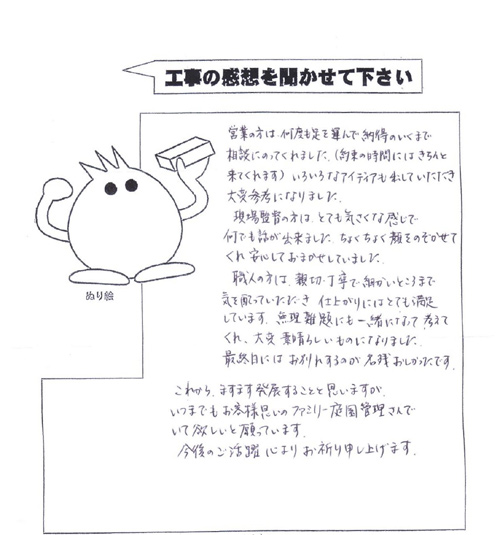 工事の感想を聞かせて下さい
営業の方は、何度も足を運んで納得のいくまで
相談にのってくれました。(約束の時間にはきちんと
来てくれます) いろいろなアイディアも出していただき
大変参考になりました。
現場監督の方は、とても気さくな感じで
何でも話が出来ました。ちょくちょく顔をのぞかせて
くれ安心しておまかせしていました。
職人の方は、親切・丁寧で細かいところまで
気を配っていただき 仕上がりにはとても満足
しています。無理難題にも一緒になって考えて
くれ、大変素晴らしいものになりました。
最終日にはお別れするのが名残おしかったです。
ぬり絵
これから、ますます発展することと思いますが、
いつまでもお客様思いのファミリー庭園管理さんで
いて欲しいと願っています。
今後のご活躍心よりお祈り申し上げます。